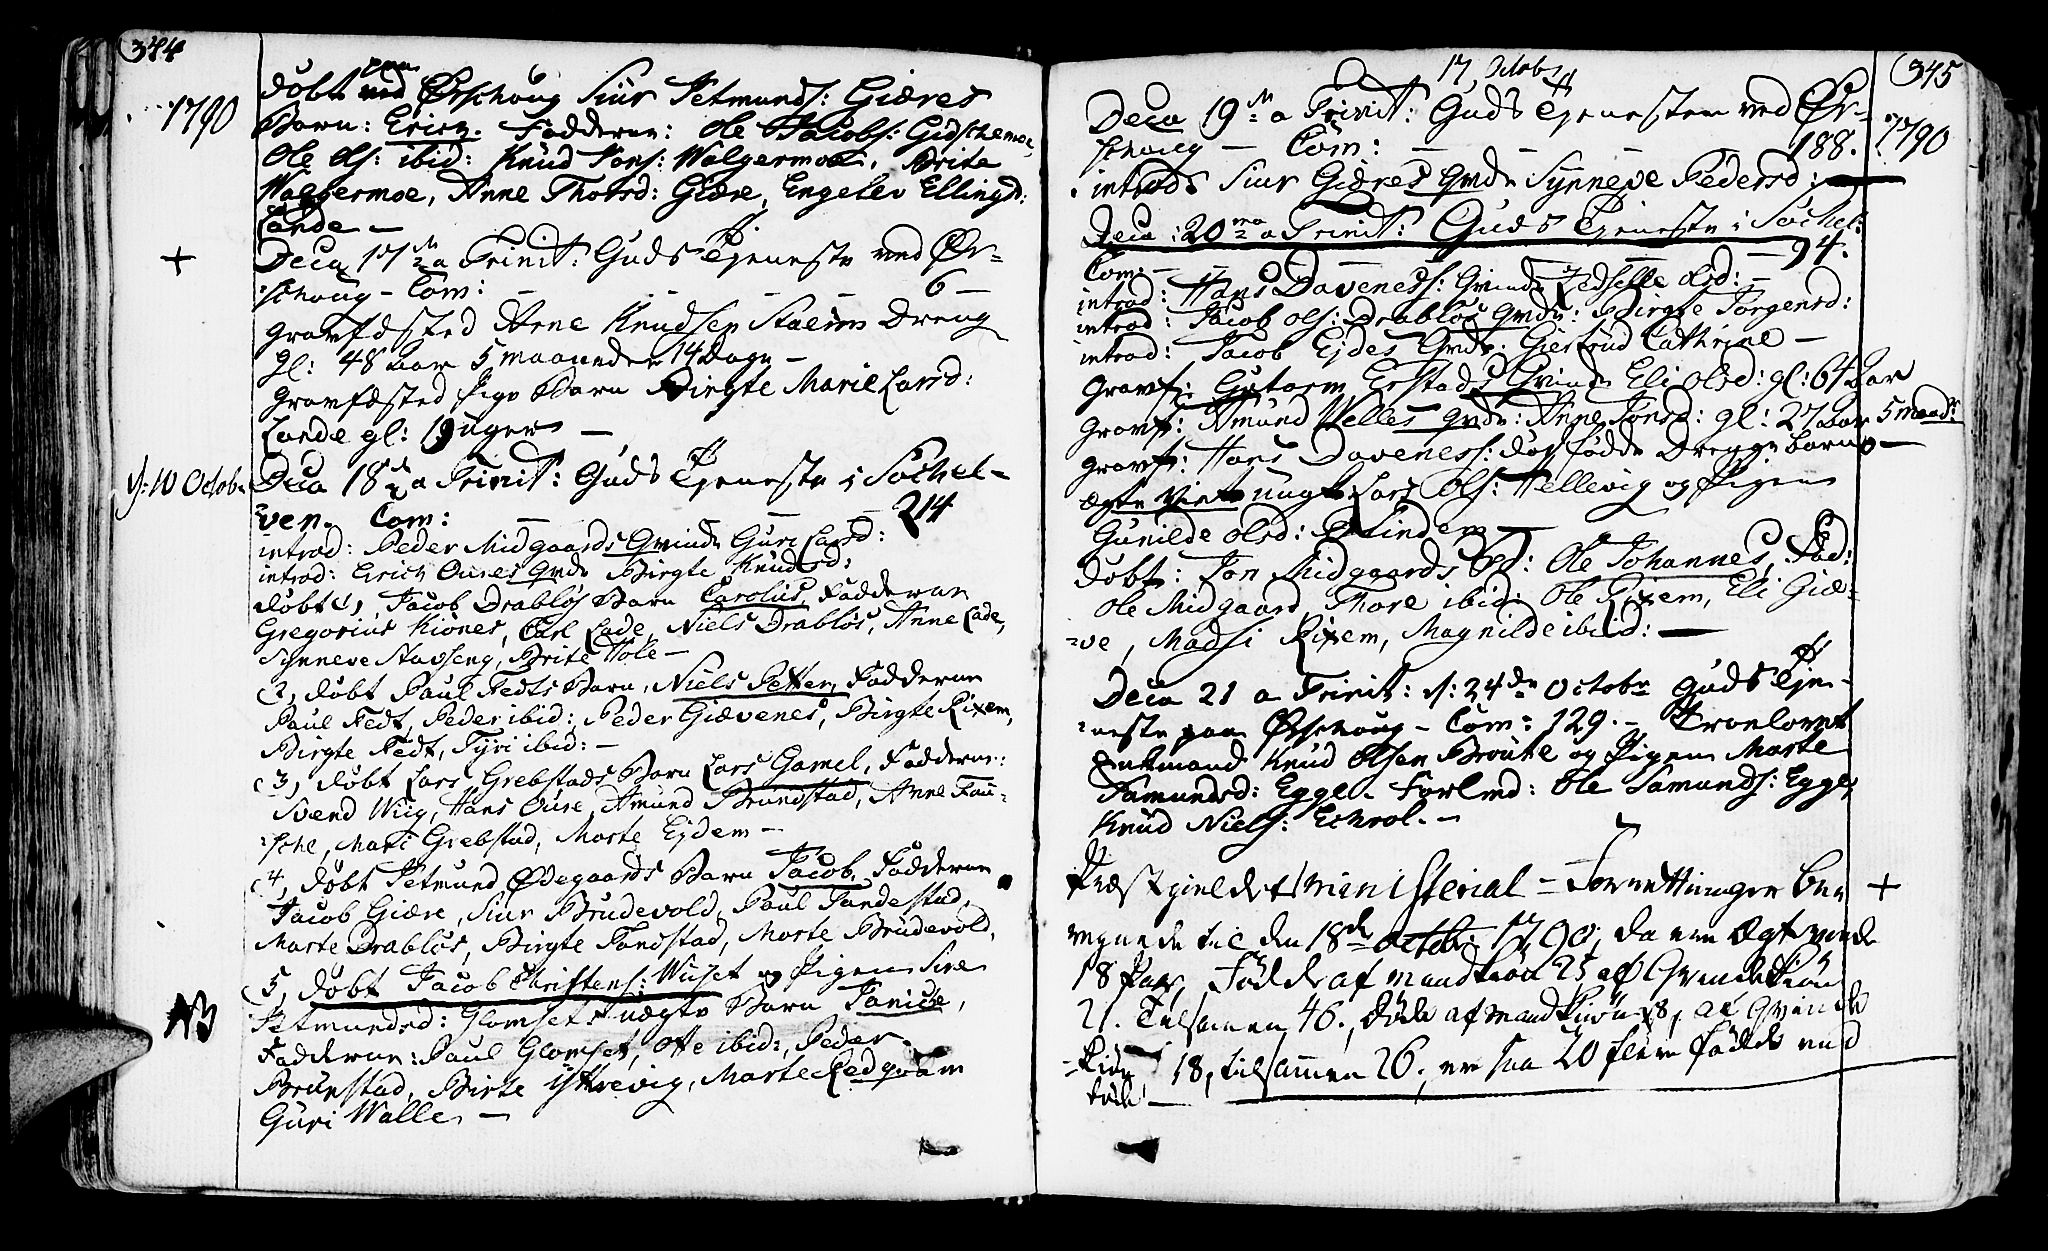 344
1790
døbt paa ved Ørschoug Siur Petmunds: Giæres
Barn: Erich. Fadderne: Ole Jacobs: Gidschemoe,
Ole Ols: ibid: Knud Jons: Walgermoe, Brite
Walgermoe, Anne Thorsd: Giære, Engelev Ellingsd:
Lande –
+
Dca 17 a Trinit: Guds Tjeneste ved Ør-
schoug – Com: – – – 6 –
gravfæsted Arne Knudsen Staeim Dreng
gl: 48 aar 5 maaneder 14 Dage –
gravfæsted Pige Barn Birgte Marie Larsd:
Lande gl: 19 uger –
d: 10 Octobr
Dca 18 a Trinit: Guds Tjeneste i Søchel-
ven. Com: – – – 214
introd: Peder Midgaards Qvinde Guri Larsd:
introd: Erich Oures Qvde Birgte Knudsd:
døbt 1, Jacob Drabløs Barn Carolus, Fadderne
Gregorius Kiønes, Carl Lade, Niels Drabløs, Anne Lade,
Synneve Stavseng, Brite Hole –
2, døbt Paul Fedts Barn, Niels Petter, Fadderne
Paul Fedt, Peder ibid: Peder Giævenes, Birgte Rixem,
Birgte Fedt, Tyri ibid: –
3, døbt Lars Grebstads Barn Lars Gamel, Fadderne:
Svend Wiig, Hans Oure, Amund Brundstad, Anne Fau-
sche, Mari Grebstad, Marte Ejdem –
4, døbt Petmund Ødegaards Barn Jacob, Fadderne
Jacob Giære, Siur Brudevold, Paul Tandestad,
Marte Drabløs, Birgte Tandstad, Marte Brudevold,
NB
5, døbt Jacob Christens: Wiset og Pigen Sire
Petmundsd: Glomsets uægte Barn Janiche,
Fadderne: Paul Glomset, Otte ibid:, Peder
Brunstad, Birte Ystrevig, Marte Redqvam
Guri Walle –
345
1790
17, Octobr
Dca 19 a Trinit: Guds Tjenesten ved Ør-
schoug – Com: – – – 188.
introd: Siur Giæres Qvde Synneve Pedersd: –
Dca: 20 a Trinit: Guds Tjeneste i Søchel:
Com: – – – 94.
introd: Hans Davenes: Qvinde Zedselle Olsd: –
introd: Jacob Ols: Drabløs Qvde: Birgte Jørgensd:
introd: Jacob Ejdes Qvde: Giertrud Cathrine –
gravf: Gutorm Erstads Qvinde Eli Olsd: gl: 64 Aar
gravf: Amund Welles Qvde: Anne Jonsd: gl: 27 aar 5 maadr
gravf: Hans Davenes: død fødde Drenge barn –
ægte viet ungk: Lars Ols: Hellevig og Pigen
Gunilde Olsd: Blindem –
døbt: Jon Midgaards Bd: Ole Johannes, Fad:
Ole Midgaard, Thore ibid: Ole Rixem, Eli Giæ-
ve, Madsi Rixem, Magnilde ibid: –
Dca 21 a Trinit: d: 24de Octobr Guds Tje-
neste paa Ørschoug – Com: 129. – Trovlovet
Enkemand Knud Olsen Broute og Pigen Marte
Samundsd: Egge. Forlmd: Ole Samunds: Egge,
Knud Niels: Echrol. –
Præstgieldets Ministerial – Forrettninger be-
+
regnede til den 18de Octobr 1790, da ere Ægteviede
18 Par, Fødde af mandkiøn 25, af Qvindekiøn
21. Tilsamen 46., døde af mandkiøn 8, af Qvinde
kiøn 18, tilsammen 26., ere saa 20 flere fødde end
døde –